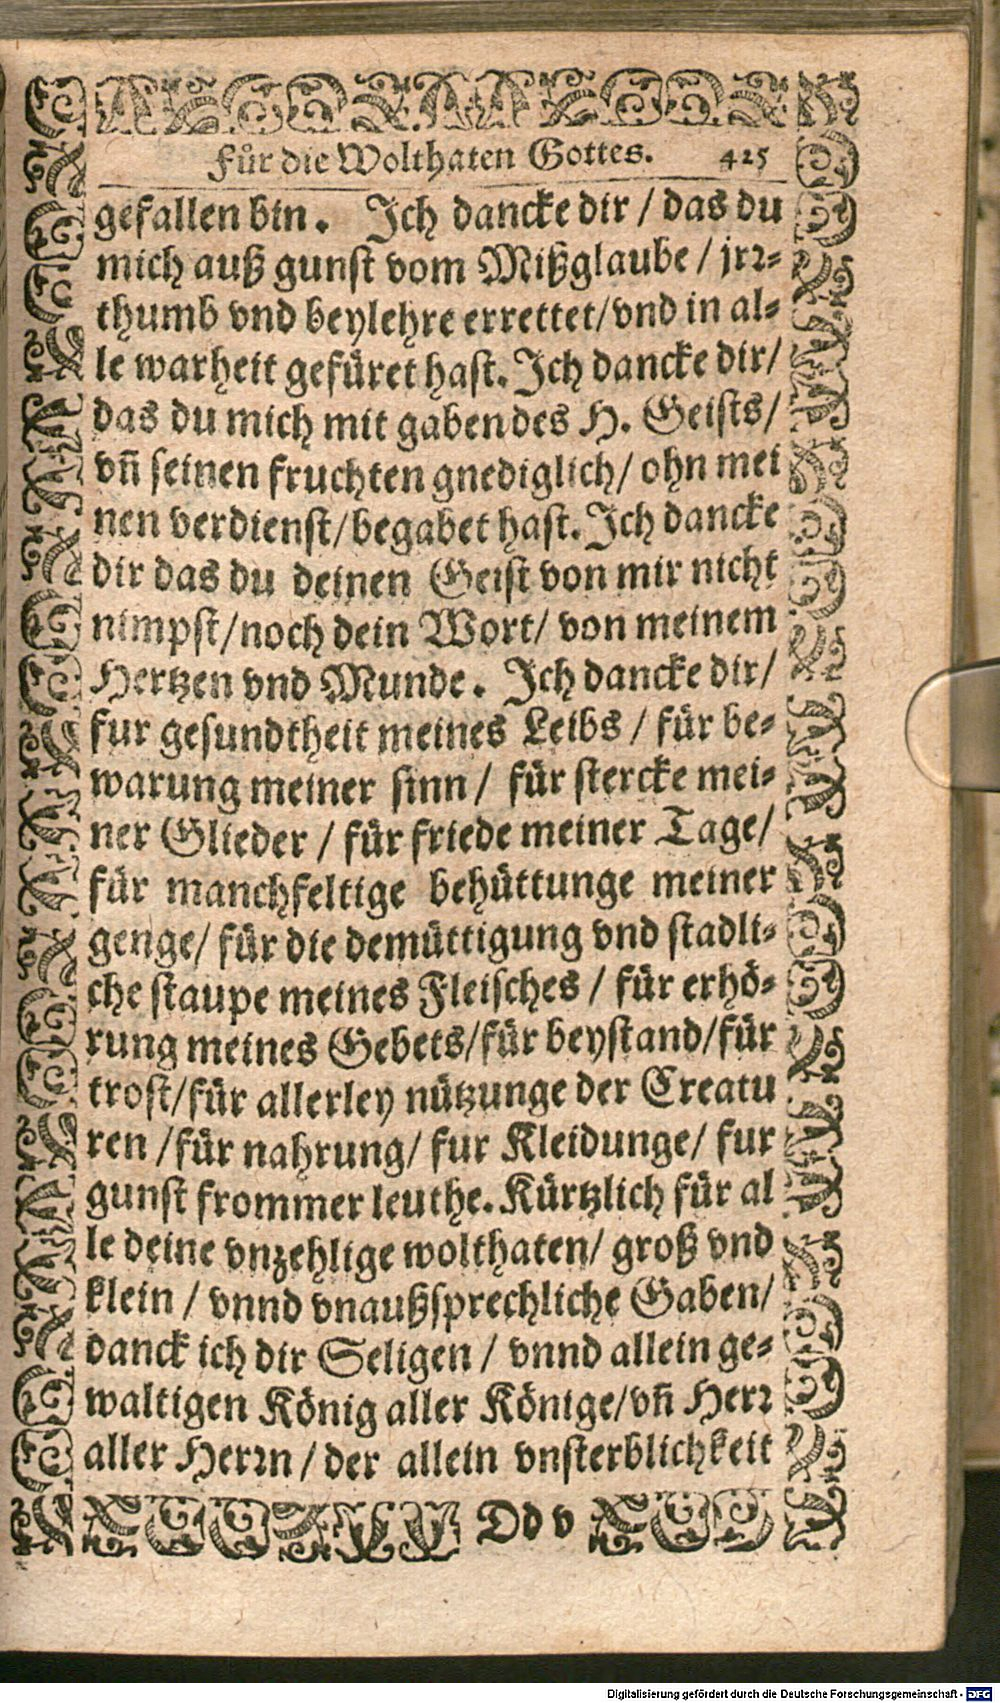 Für die Wolthaten Gottes. 425
gefallen bin. Ich dancke dir / das du
mich auß gunst vom Mißglaube / jrꝛ-
thumb vnd beylehre errettet/vnd in al-
le warheit gefüret hast. Ich dancke dir/
das du mich mit gaben des H. Geists/
vñ seinen fruchten gnediglich/ ohn mei
nen verdienst/begabet hast. Ich dancke
dir das du deinen Geist von mir nicht
nimpst/noch dein Wort/ von meinem
Hertzen vnd Munde. Ich dancke dir/
fur gesundtheit meines Leibs / für be-
warung meiner sinn / für stercke mei-
ner Glieder / für friede meiner Tage/
für manchfeltige behüttunge meiner
genge/ für die demüttigung vnd stadli-
che staupe meines Fleisches / für erhö-
rung meines Gebets/für beystand/für
trost/für allerley nützunge der Creatu
ren /für nahrung/ fur Kleidunge/ fur
gunst frommer leuthe. Kürtzlich für al
le deine vnzehlige wolthaten/ groß vnd
klein / vnnd vnaußsprechliche Gaben/
danck ich dir Seligen / vnnd allein ge-
waltigen König aller Könige/vñ Herꝛ
aller Herꝛn / der allein vnsterblichkeit
Dd v
Digitalisierung gefördert durch die Deutsche Forschungsgemeinschaft - DFG